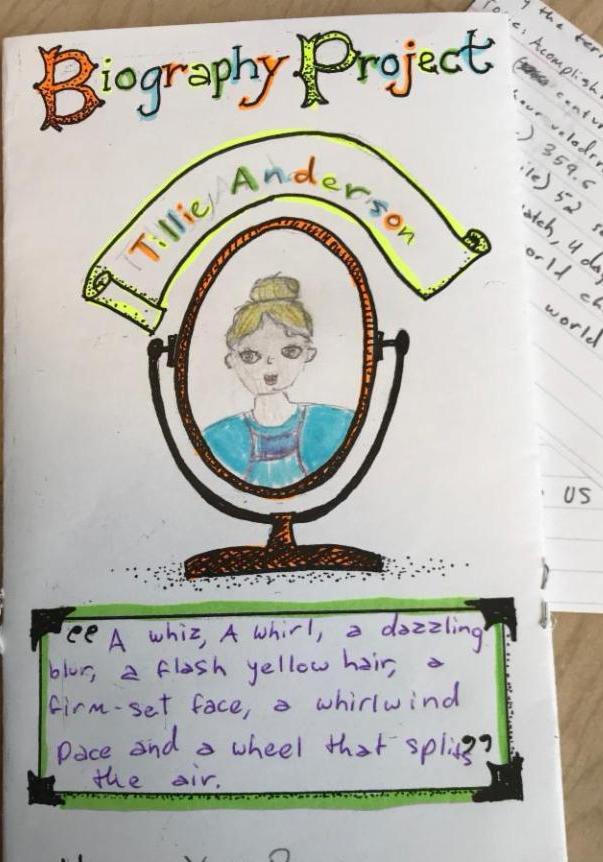 Biography Project
Tillie Anderson
“ A whiz, A whirl, a dazzling
blur, a flash yellow hair, a
firm-set face, a whirlwind
Pace and a wheel that splits ”
the air.
the
Acomplish
359.6
52
4 day
world
world
US